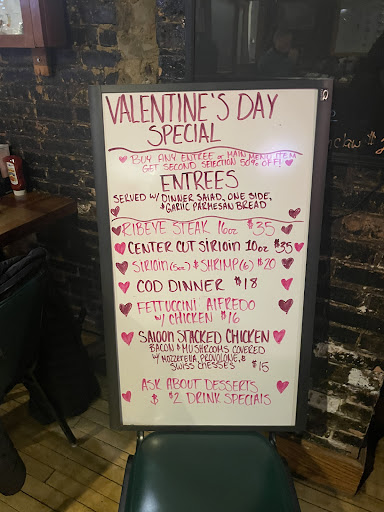 VALENTINE'S DAY
SPECIAL
BUY ANY ENTREE or MAIN MENU ITEM
GET SECOND SELECTION 50% OFF!
ENTREES
SERVED W/ DINNER SALAD, ONE SIDE,
& GARLIC PARMESAN BREAD
RIBEYE STEAK 16oz $35
CENTER CUT SIRIOIN 10oz $35
SIRIOIN (5oz) & SHRIMP(6) $20
COD DINNER $18
FETTUCCINI ALFREDO
W/ CHICKEN $16
SALOON STACKED CHICKEN
BACON & MUSHROOMS COVERED
W/ MOZZERELLA, PROVOLONE, &
SWISS CHESSES $15
ASK ABOUT DESSERTS
& $2 DRINK SPECIALS